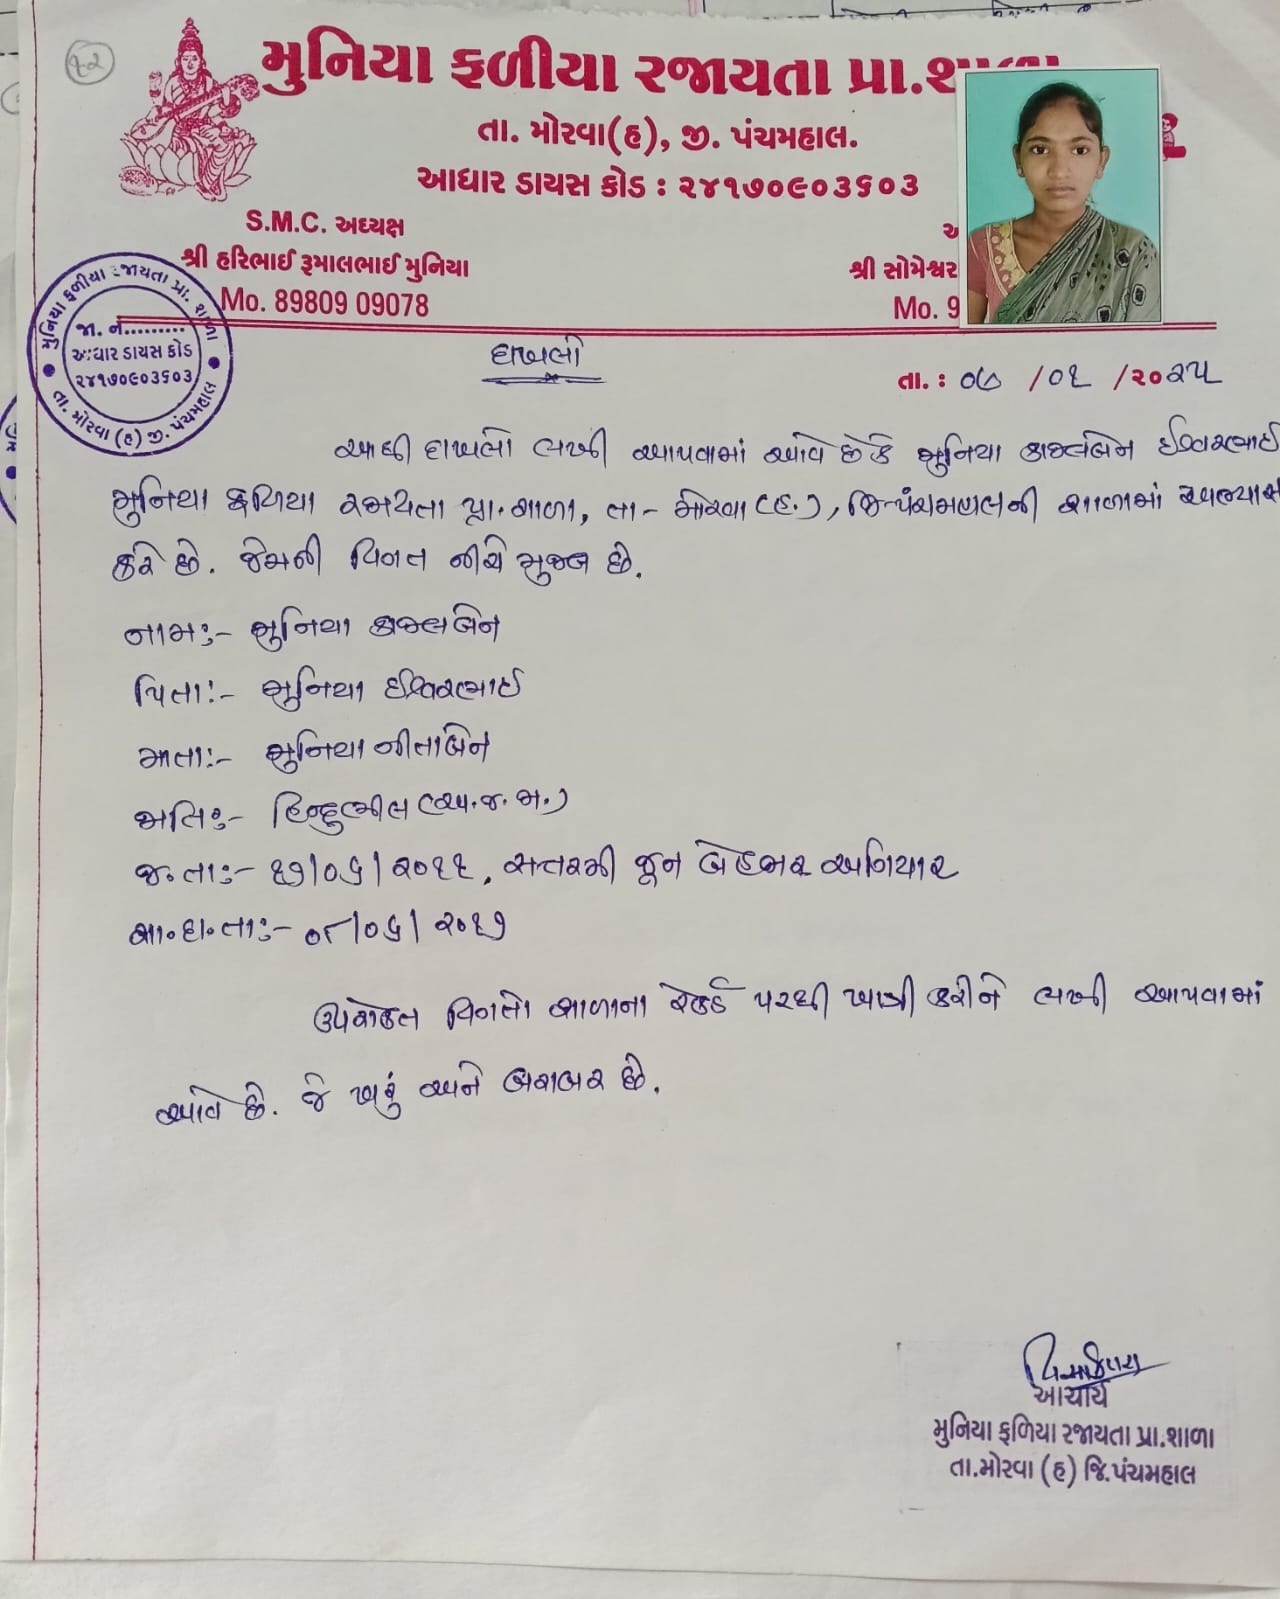 ૧૨
મુનિયા ફળીયા રજાયતા પ્રા.શાળા
તા. મોરવા(હ), જી. પંચમહાલ.
આધાર ડાયસ કોડ : ૨૪૧૭૦૯૦૩૬૦૩
S.M.C. અધ્યક્ષ
શ્રી હરિભાઈ રૂમાલભાઈ મુનિયા
Mo. 89809 09078
શ્રી સોમેશ્વર
Mo. 9
મુનિયા ફળીયા રજાયતા પ્રા. શાળા
જા. નં.........
આધાર ડાયસ કોડ
૨૪૧૭૦૯૦૩૬૦૩
તા. મોરવા (હ) જી. પંચમહાલ
દાખલો
તા. : ૦૭ /૦૧ /૨૦૨૫
આથી દાખલો લખી આપવામાં આવે છે કે મુનિયા કાજલબેન ઈશ્વરભાઈ
મુનિયા ફળિયા રજાયતા પ્રા. શાળા, તા- મોરવા (હ.), જિ-પંચમહાલની શાળામાં અભ્યાસ
કરે છે. જેમની વિગત નીચે મુજબ છે.
નામઃ- મુનિયા કાજલબેન
પિતાઃ- મુનિયા ઈશ્વરભાઈ
માતાઃ- મુનિયા નીતાબેન
જાતિઃ- હિન્દુભીલ (અ.જ.જા.)
જ.તાઃ- ૧૭/૦૬/૨૦૧૧, સત્તરમી જૂન બેહજાર અગિયાર
શા.દા.તાઃ- ૦૮/૦૬/૨૦૧૭
ઉપરોક્ત વિગતો શાળાના રેકર્ડ પરથી ખાત્રી કરીને લખી આપવામાં
આવે છે. જે ખરું અને બરાબર છે.
આચાર્ય
મુનિયા ફળિયા રજાયતા પ્રા.શાળા
તા.મોરવા (હ) જિ.પંચમહાલ